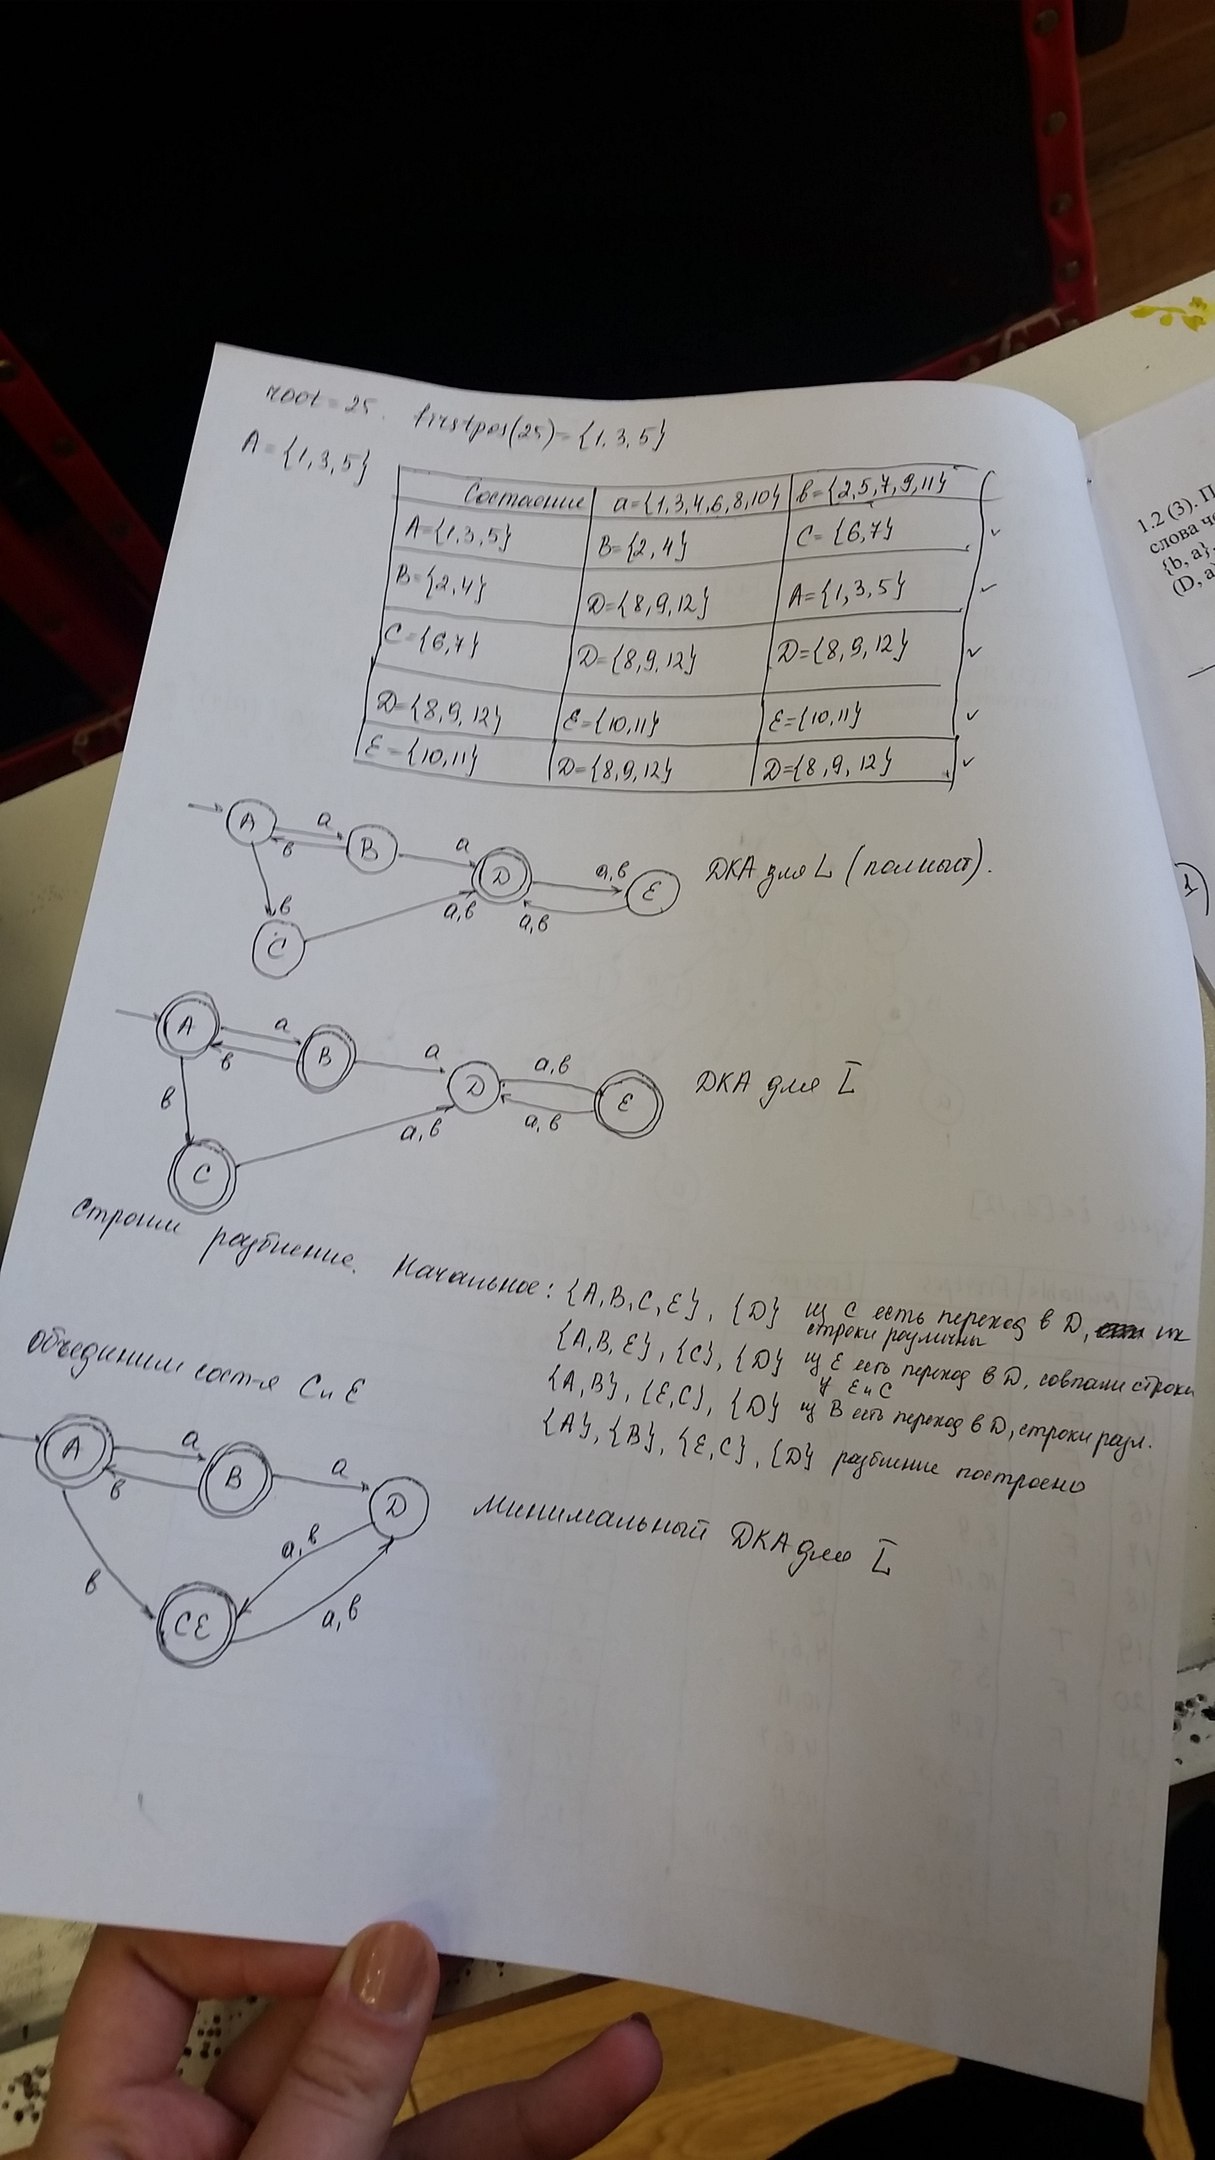 root = 25. firstpos(25) = {1, 3, 5}
A = {1, 3, 5}
Состояние a={1,3,4,6,8,10} b={2,5,7,9,11}
A={1,3,5} B={2,4} C={6,7}
B={2,4} D={8,9,12} A={1,3,5}
C={6,7} D={8,9,12} D={8,9,12}
D={8,9,12} E={10,11} E={10,11}
E={10,11} D={8,9,12} D={8,9,12}
A a B в a D a,в E ДКА для L (полный).
в C a,в a,в
A a B в a D a,в E ДКА для L̅
в C a,в a,в
Строим разбиение. Начальное: {A,B,C,E}, {D} из C есть переход в D, их
строки различны
{A,B,E}, {C}, {D} из E есть переход в D, совпали строки
у E и C
Объединим сост-я C и E
{A,B}, {E,C}, {D} из B есть переход в D, строки разл.
{A}, {B}, {E,C}, {D} разбиение построено
A a B в a D
Минимальный ДКА для L̅
в CE a,в a,в
1.2 (3). П
слова
{b, a},
(D, a
1)